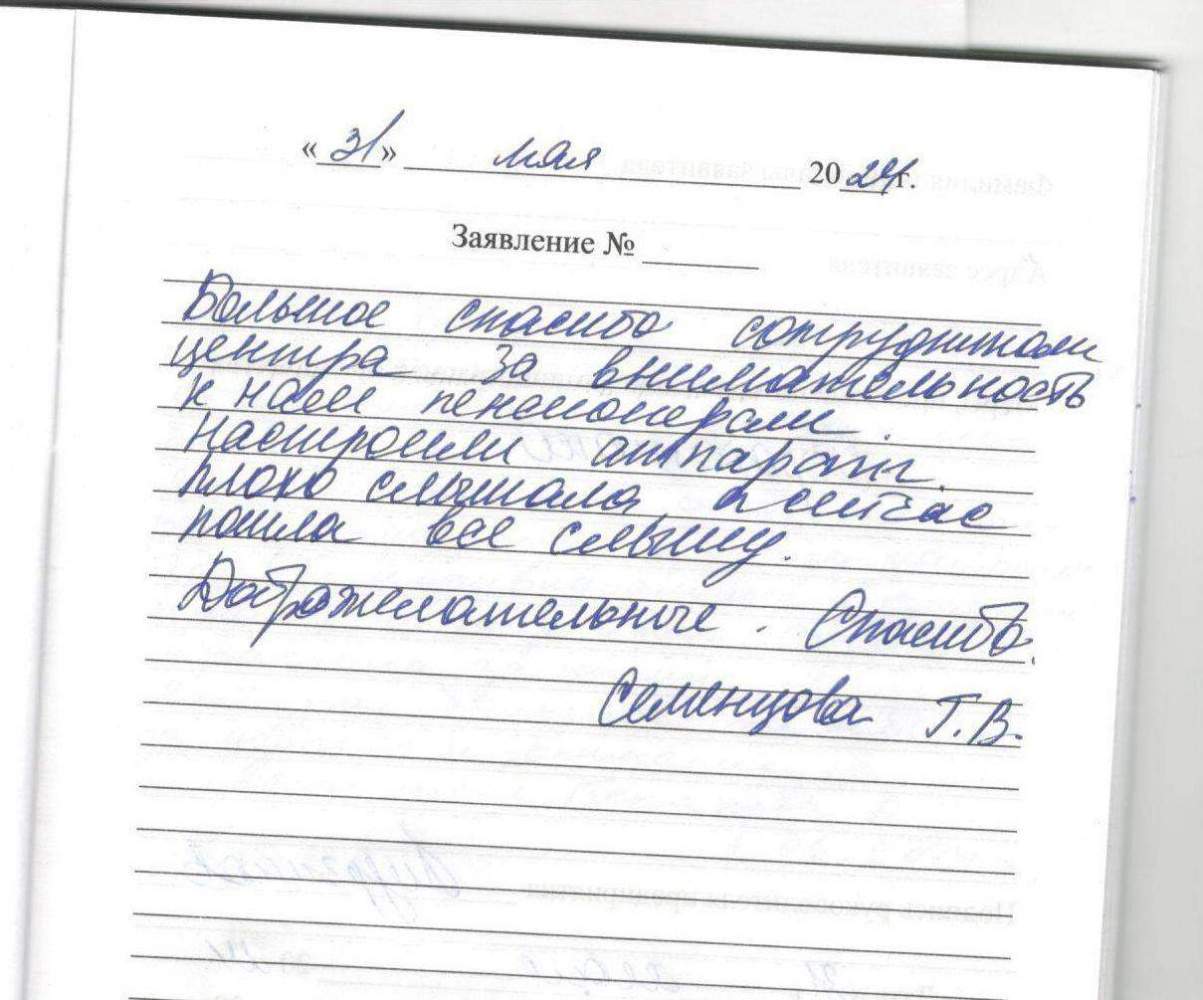 «31» мая 2024г.
Заявление №
Большое спасибо сотрудникам
центра за внимательность
к нам пенсионерам.
Настроили аппарат.
плохо слышала, а сейчас
пошла все слышу.
Доброжелательные. Спасибо.
Семенцова Г.В.